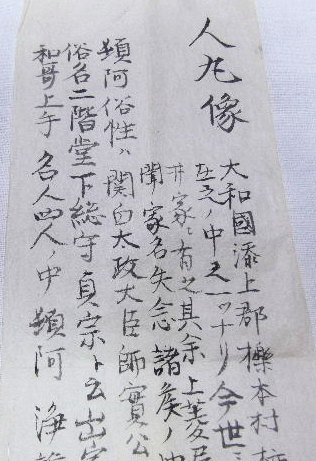 人丸像
大和國添上郡櫟本村
在之ノ中之一ツナリ今世ニ
井家ニ有之其余上菱
聞家名失念諸矦ノ
頓阿俗性ハ関白太政大臣師實公
俗名二階堂下総守貞宗ト云出家
和哥上手名人四人ノ中頓阿浄